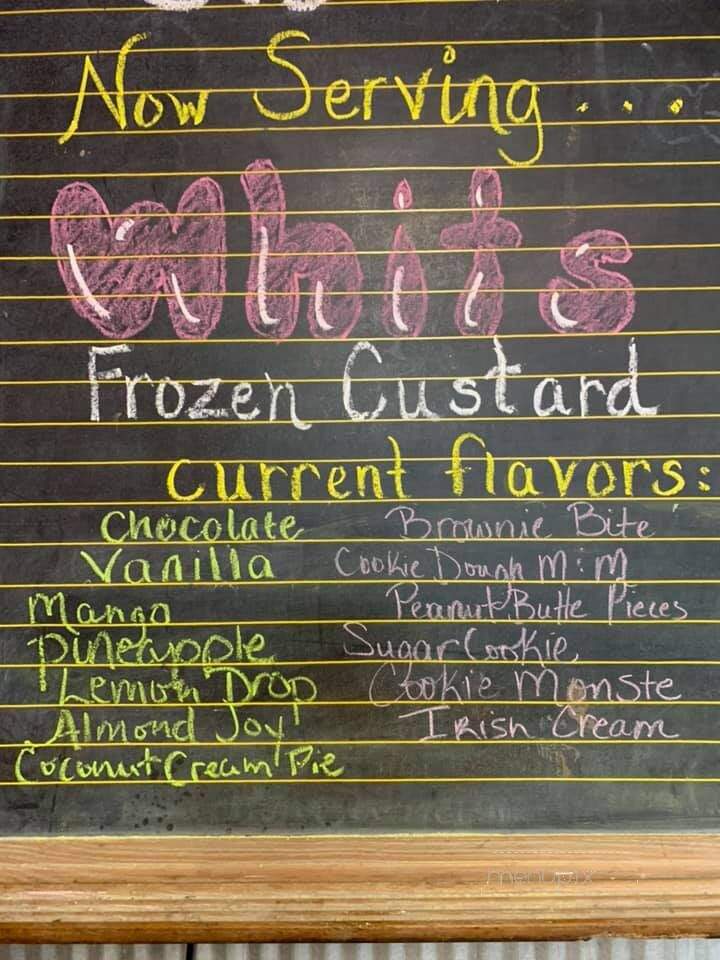 Now Serving...
Whits
Frozen Custard
current flavors:
Chocolate
Vanilla
Mango
Pineapple
Lemon Drop
Almond Joy
Coconut Cream Pie
Brownie Bite
Cookie Dough M:M
Peanut Butte Pieces
Sugar Cookie
Cookie Monste
Irish Cream
menupix